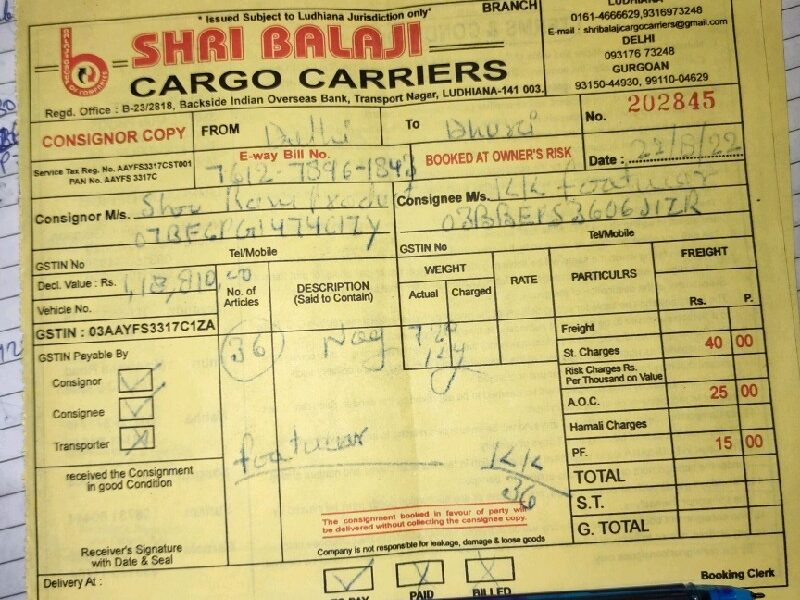 * Issued Subject to Ludhiana Jurisdiction only*
BRANCH
0161-4666629,9316973248
E-mail : shribalajicargocarriers@gmail.com
DELHI
093176 73248
GURGOAN
93150-44930, 99110-04629
SHRI BALAJI
CARGO CARRIERS
Regd. Office : B-23/2818, Backside Indian Overseas Bank, Transport Nager, LUDHIANA-141 003.
CONSIGNOR COPY
FROM Delhi
TO
No. 202845
Service Tax Reg. No. AAYFS3317CST001
PAN No. AAYFS 3317C
E-way Bill No.
7612-7396-1843
BOOKED AT OWNER'S RISK
Date :
Consignor M/s.
Consignee M/s. KK footwear
GSTIN No
Tel/Mobile
GSTIN No
Tel/Mobile
Decl. Value : Rs.
Vehicle No.
GSTIN : 03AAYFS3317C1ZA
No. of Articles
DESCRIPTION
(Said to Contain)
WEIGHT
Actual
Charged
RATE
PARTICULRS
FREIGHT
Rs.
P.
36 Nag
GSTIN Payable By
Consignor
Consignee
Transporter
Freight
St. Charges 40 00
Risk Charges Rs.
Per Thousand on Value
A.O.C. 25 00
Hamali Charges
PF. 15 00
TOTAL
S.T.
G. TOTAL
footwear
KK
36
received the Consignment
in good Condition
The consignment booked in favour of party will
be delivered without collecting the consignee copy.
Receiver's Signature
with Date & Seal
Company is not responsible for leakage, damage & loose goods
Delivery At :
TO PAY
PAID
BILLED
Booking Clerk